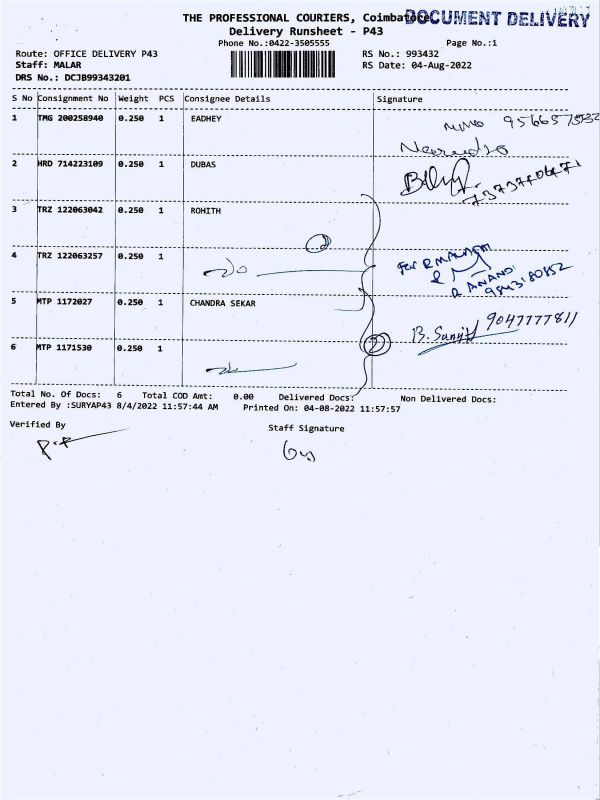 THE PROFESSIONAL COURIERS, Coimbatore
DOCUMENT DELIVERY
Delivery Runsheet - P43
Phone No.:0422-3505555
Page No.:1
Route: OFFICE DELIVERY P43
RS No.: 993432
Staff: MALAR
RS Date: 04-Aug-2022
DRS No.: DCJB99343201
S No Consignment No Weight PCS Consignee Details Signature
1 TMG 200258940 0.250 1 EADHEY
2 HRD 714223109 0.250 1 DUBAS
7373770671
3 TRZ 122063042 0.250 1 ROHITH
2
4 TRZ 122063257 0.250 1
For
R ANAND
9843180852
5 MTP 1172027 0.250 1 CHANDRA SEKAR
9047777811
6 MTP 1171530 0.250 1
2
Total No. Of Docs: 6 Total COD Amt: 0.00 Delivered Docs: Non Delivered Docs:
Entered By :SURYAP43 8/4/2022 11:57:44 AM Printed On: 04-08-2022 11:57:57
Verified By
Staff Signature